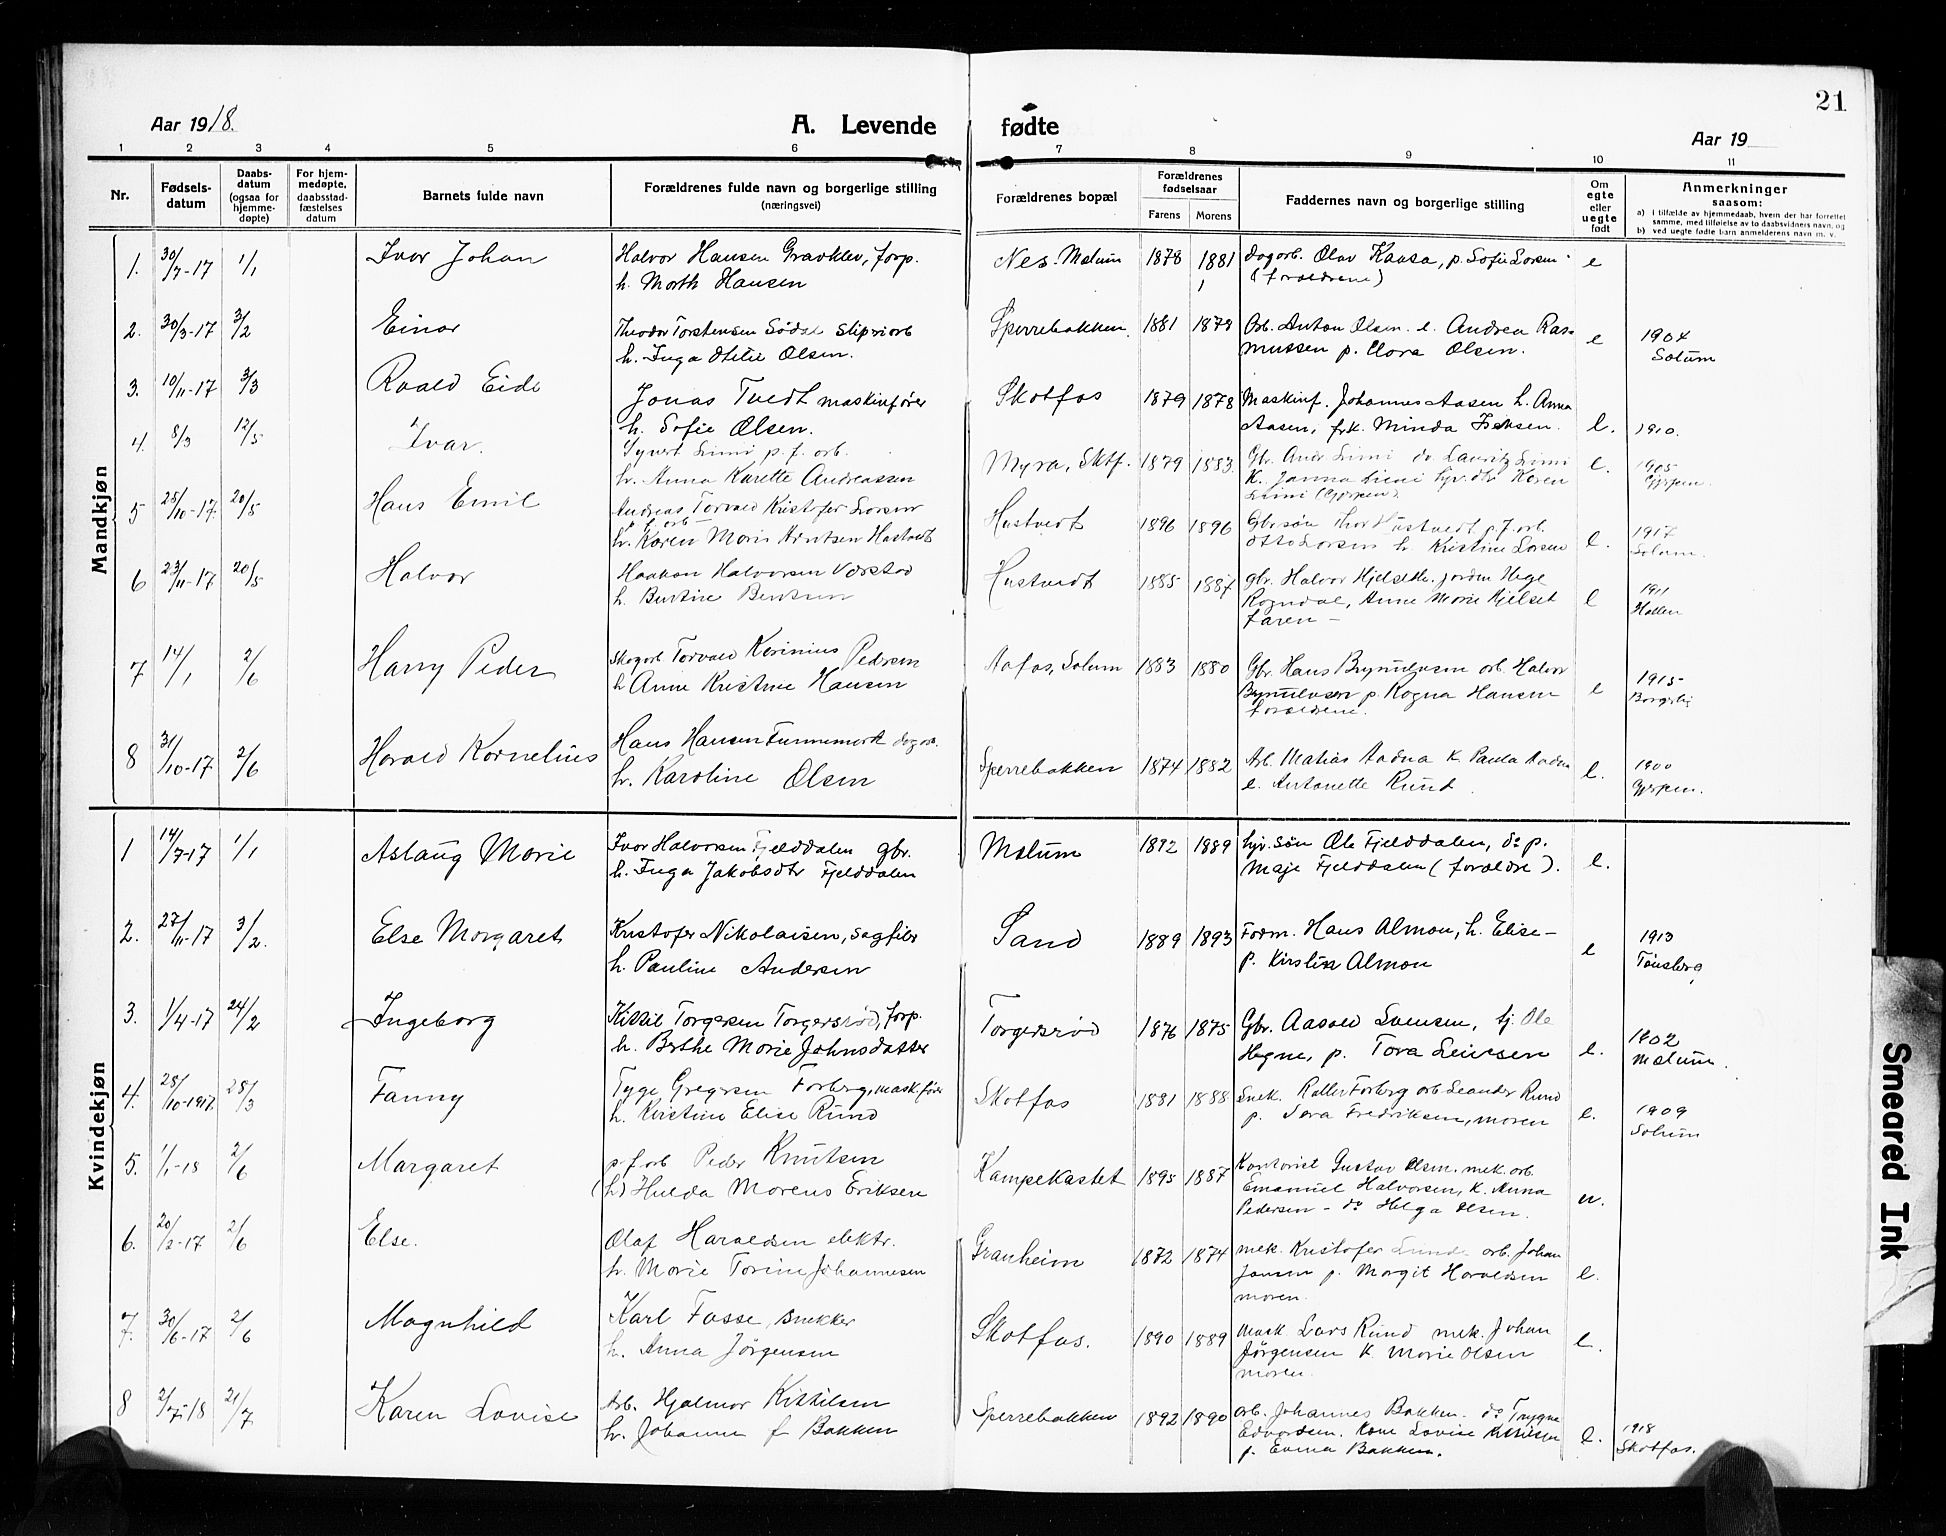 21
Aar 1918.
A. Levende fødte
Aar 19
1 2 3 4 5 6 7 8 9 10 11
Nr.
Fødsels-datum
Daabs-datum (ogsaa for hjemme-døpte)
For hjem-medøpte, daabsstad-fæstelses datum
Barnets fulde navn
Forældrenes fulde navn og borgerlige stilling
(næringsvei)
Forældrenes bopæl
Forældrenes fødselsaar
Farens
Morens
Faddernes navn og borgerlige stilling
Om egte eller uegte født
Anmerkninger
saasom:
a) i tilfælde av hjemmedaab, hvem der har forrettet samme, med tilføielse av to daabsvidners navn, og
b) ved uegte fødte barn anmelderens navn m. v.
Mandkjøn
1. 30/7-17 1/1 Ivar Johan Halvor Hansen Gravklev, forp. Nes. Mælum 1878 1881 dagarb. Olav Kaasa, p. Sofie Larsen e
h. Marth Hansen (forældrene)
2. 30/3-17 3/2 Einar Theodor Torstensen Södal sliperiarb Sperrebakken. 1881 1878 Arb. Anton Olsen. e. Andrea Ras- e 1904
h. Inga Otelie Olsen. mussen p. Clara Olsen. Solum
3. 10/11-17 3/3 Roald Eide Jonas Tvedt maskinfører Skotfos 1879 1878 Maskinf. Johannes Aasen h. Anna
h. Sofie Olsen. Aasen, frk. Minda Isaksen. e. 1910.
4. 8/3 12/5 Ivar. Syvert Limi p. f. arb. Myra, Sktf. 1879 1883. Gbr. Andr Limi do Lauritz Limi e. 1905
h. Anna Karette Andreassen K. Janna Limi hjv. dtr Karen Gjerpen.
Limi (Gjerpen).
5 28/10-17. 20/5 Hans Emil Andreas Torvald Kristofer Larsen Hustvedt 1896 1896 Gbr. søn Thor Hustvedt p.f. arb. 1917
p. f. arb
h. Karen Marie Arntsen Hustvedt Otto Larsen h. Kristine Larsen e. Solum.
6 23/11-17 20/5 Halvor Haakon Halvorsen Værstad Hustvedt 1885 1887 gbr. Halvor Hjelseth. jordm Hege 1911
h. Bertine Bentsen Rogndal, Anne Marie Hjelset e Hollen
faren -
7 14/1 2/6 Harry Peder Skogarb Torvald Karinius Pedersen Aafos, Solum 1883 1880 Gbr. Hans Brynulvsen arb. Halvor 1915
h Anne Kristine Hansen Brynulvsen p. Ragna Hansen e
forældrene.
8 31/10-17 2/6 Harald Kornelius Hans Hansen Funnemark dagarb. Sperrebakken 1874 1882 Arb. Matias Aadna K. Paula Aadna e. 1900
h. Karoline Olsen e. Antonette Rund. Gjerpen.
Kvindekjøn
1 14/7-17 1/1 Aslaug Marie Ivar Halvorsen Fjelddalen gbr. Mælum 1872 1889 hjv. søn Ole Fjelddalen, do p.
h. Inga Jakobsdtr Fjelddalen Maje Fjelddalen (forældre). e.
2. 27/11-17 3/2. Else Margaret Kristofer Nikolaisen, sagfiler Sand 1889 1893 Form. Hans Alman, h. Elise - 1913
h. Pauline Andersen p. Kirsten Alman e Tønsberg
3. 1/4-17 24/2 Ingeborg Kittil Torgersen Torgersrød, forp. Torgersrød 1876 1875 Gbr. Aasold Svensen, tj. Ole 1902
h. Berthe Marie Johnsdatter Hegna, p. Tora Sivesen e. Mælum.
4. 28/10-1917. 28/3 Fanny Tyge Gregersen Forberg, maskfører Skotfos 1881 1888 Snek. Rolle Forberg arb. Leander Rund 1909
h. Kristine Elise Rund p. Sara Fredriksen, moren e. Solum
5. 1/1-18 2/6 Margaret p. f arb Peder Knutsen Kampekastet 1895 1887 Kontorist Gustav Olsen. mek. arb.
(h) Hulda Marens Eriksen Emanuel Halvorsen, K. Anna u.
Pedersen - do Helga Olsen.
6. 20/2-17 2/6 Else. Olaf Haraldsen elektr. Granheim 1872 1874 mek. Kristofer Lund. arb. Johan
h. Marie Torine Johannesen Jansen p. Margit Haraldsen e.
moren.
7. 30/6-17 2/6 Magnhild Karl Fosse, snekker Skotfos. 1890 1889 Mask Lars Rund mek. Johan e.
h. Anna Jørgensen Jørgensen K. Marie Olsen
moren.
8 2/7-18 21/7 Karen Lovise Arb. Hjalmar Kittilsen Sperrebakken 1892 1890 arb. Johannes Bakken. do Trygve 1918
h. Johanne f Bakken Edvardsen. Kone Lovise Kittilsen e. Skotfos.
p. Evina Bakken.
Smeared Ink